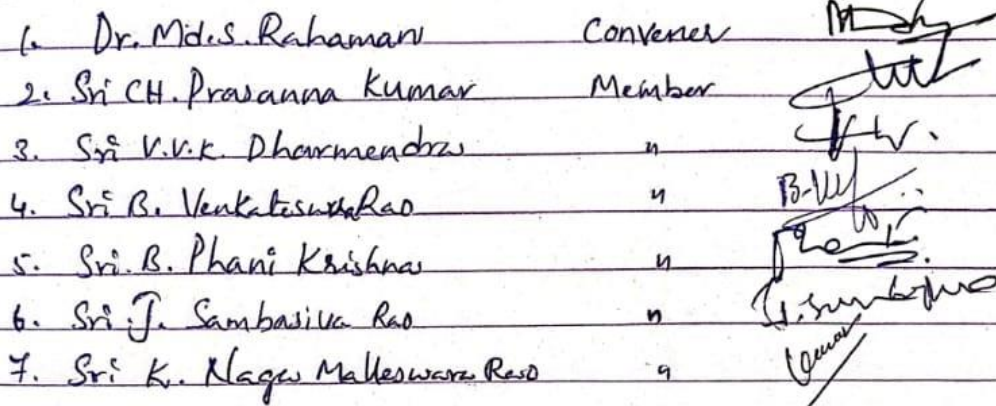 1. Dr. Md.S. Rahaman Convener
2. Sri CH. Prasanna Kumar Member
3. Sri V.V.K. Dharmendra "
4. Sri B. Venkateswara Rao " B.
5. Sri. B. Phani Krishna "
6. Sri J. Sambasiva Rao "
7. Sri K. Naga Malleswara Rao "